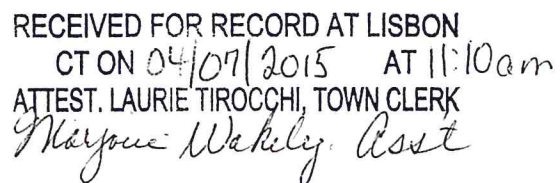 RECEIVED FOR RECORD AT LISBON
CT ON 04/07/2015 AT 11:10am
ATTEST. LAURIE TIROCCHI, TOWN CLERK
Marjorie Wakely, Asst